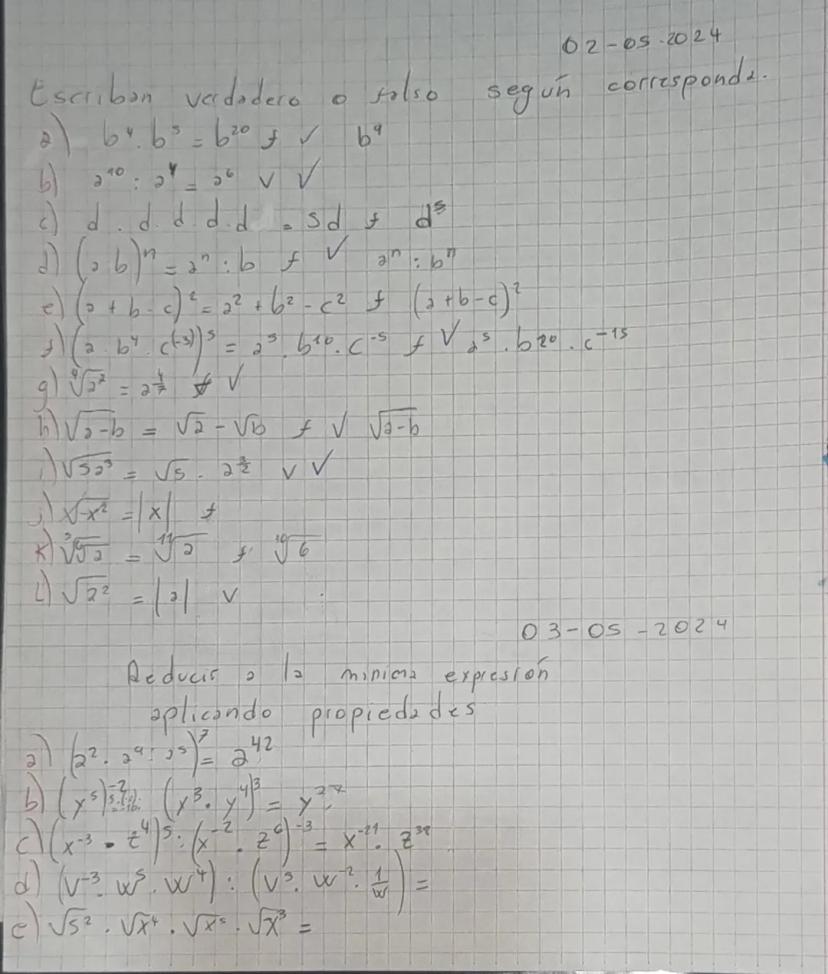 02-05-2024
Escriban verdadero o falso según corresponda.
a) b⁴ . b⁵ = b²⁰ f ✓ b⁹
b) a¹⁰ : a⁴ = a⁶ v ✓
c) d . d . d . d . d = 5d f d⁵
d) (a b)ⁿ = aⁿ : b f ✓ aⁿ : bⁿ
e) (a + b - c)² = a² + b² - c² f (a + b - c)²
f) (a . b⁴ . c⁽⁻³⁾)⁵ = a⁵ . b¹⁰ . c⁻⁵ f ✓ a⁵ . b²⁰ . c⁻¹⁵
g) ⁴√a² = a ✓
h) √a-b = √a - √b f ✓ √a-b
i) √5a³ = √5 . a^(3/2) v ✓
j) √-x² = |x| f
k) = ¹¹√2 f
L) √a² = |a| v
03-05-2024
Reducir a la minima expresión
aplicando propiedades
a) (a² . a⁹ : a⁵)⁷ = a⁴²
b) (x⁵)⁻² (x³ . y⁴)³ =
c) (x⁻³ . z⁴)⁵ : (x⁻² . z⁶)⁻³ = x⁻²¹ . z³⁸
d) (v⁻³ . w⁵ . w⁴) : (v⁵ . w⁻² . 1/w) =
e) √5² . √x⁴ . √x⁵ . √x³ =